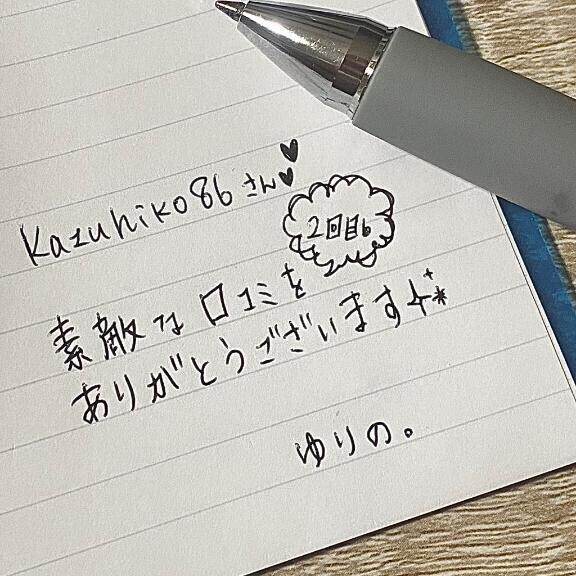 Kazuhiko86さん♥♥
2回目も
素敵な口コミを
ありがとうございます
ゆりの。